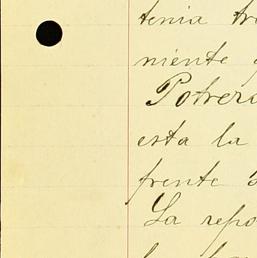 tenia
niente
Potrero
esta la
frente
La repo